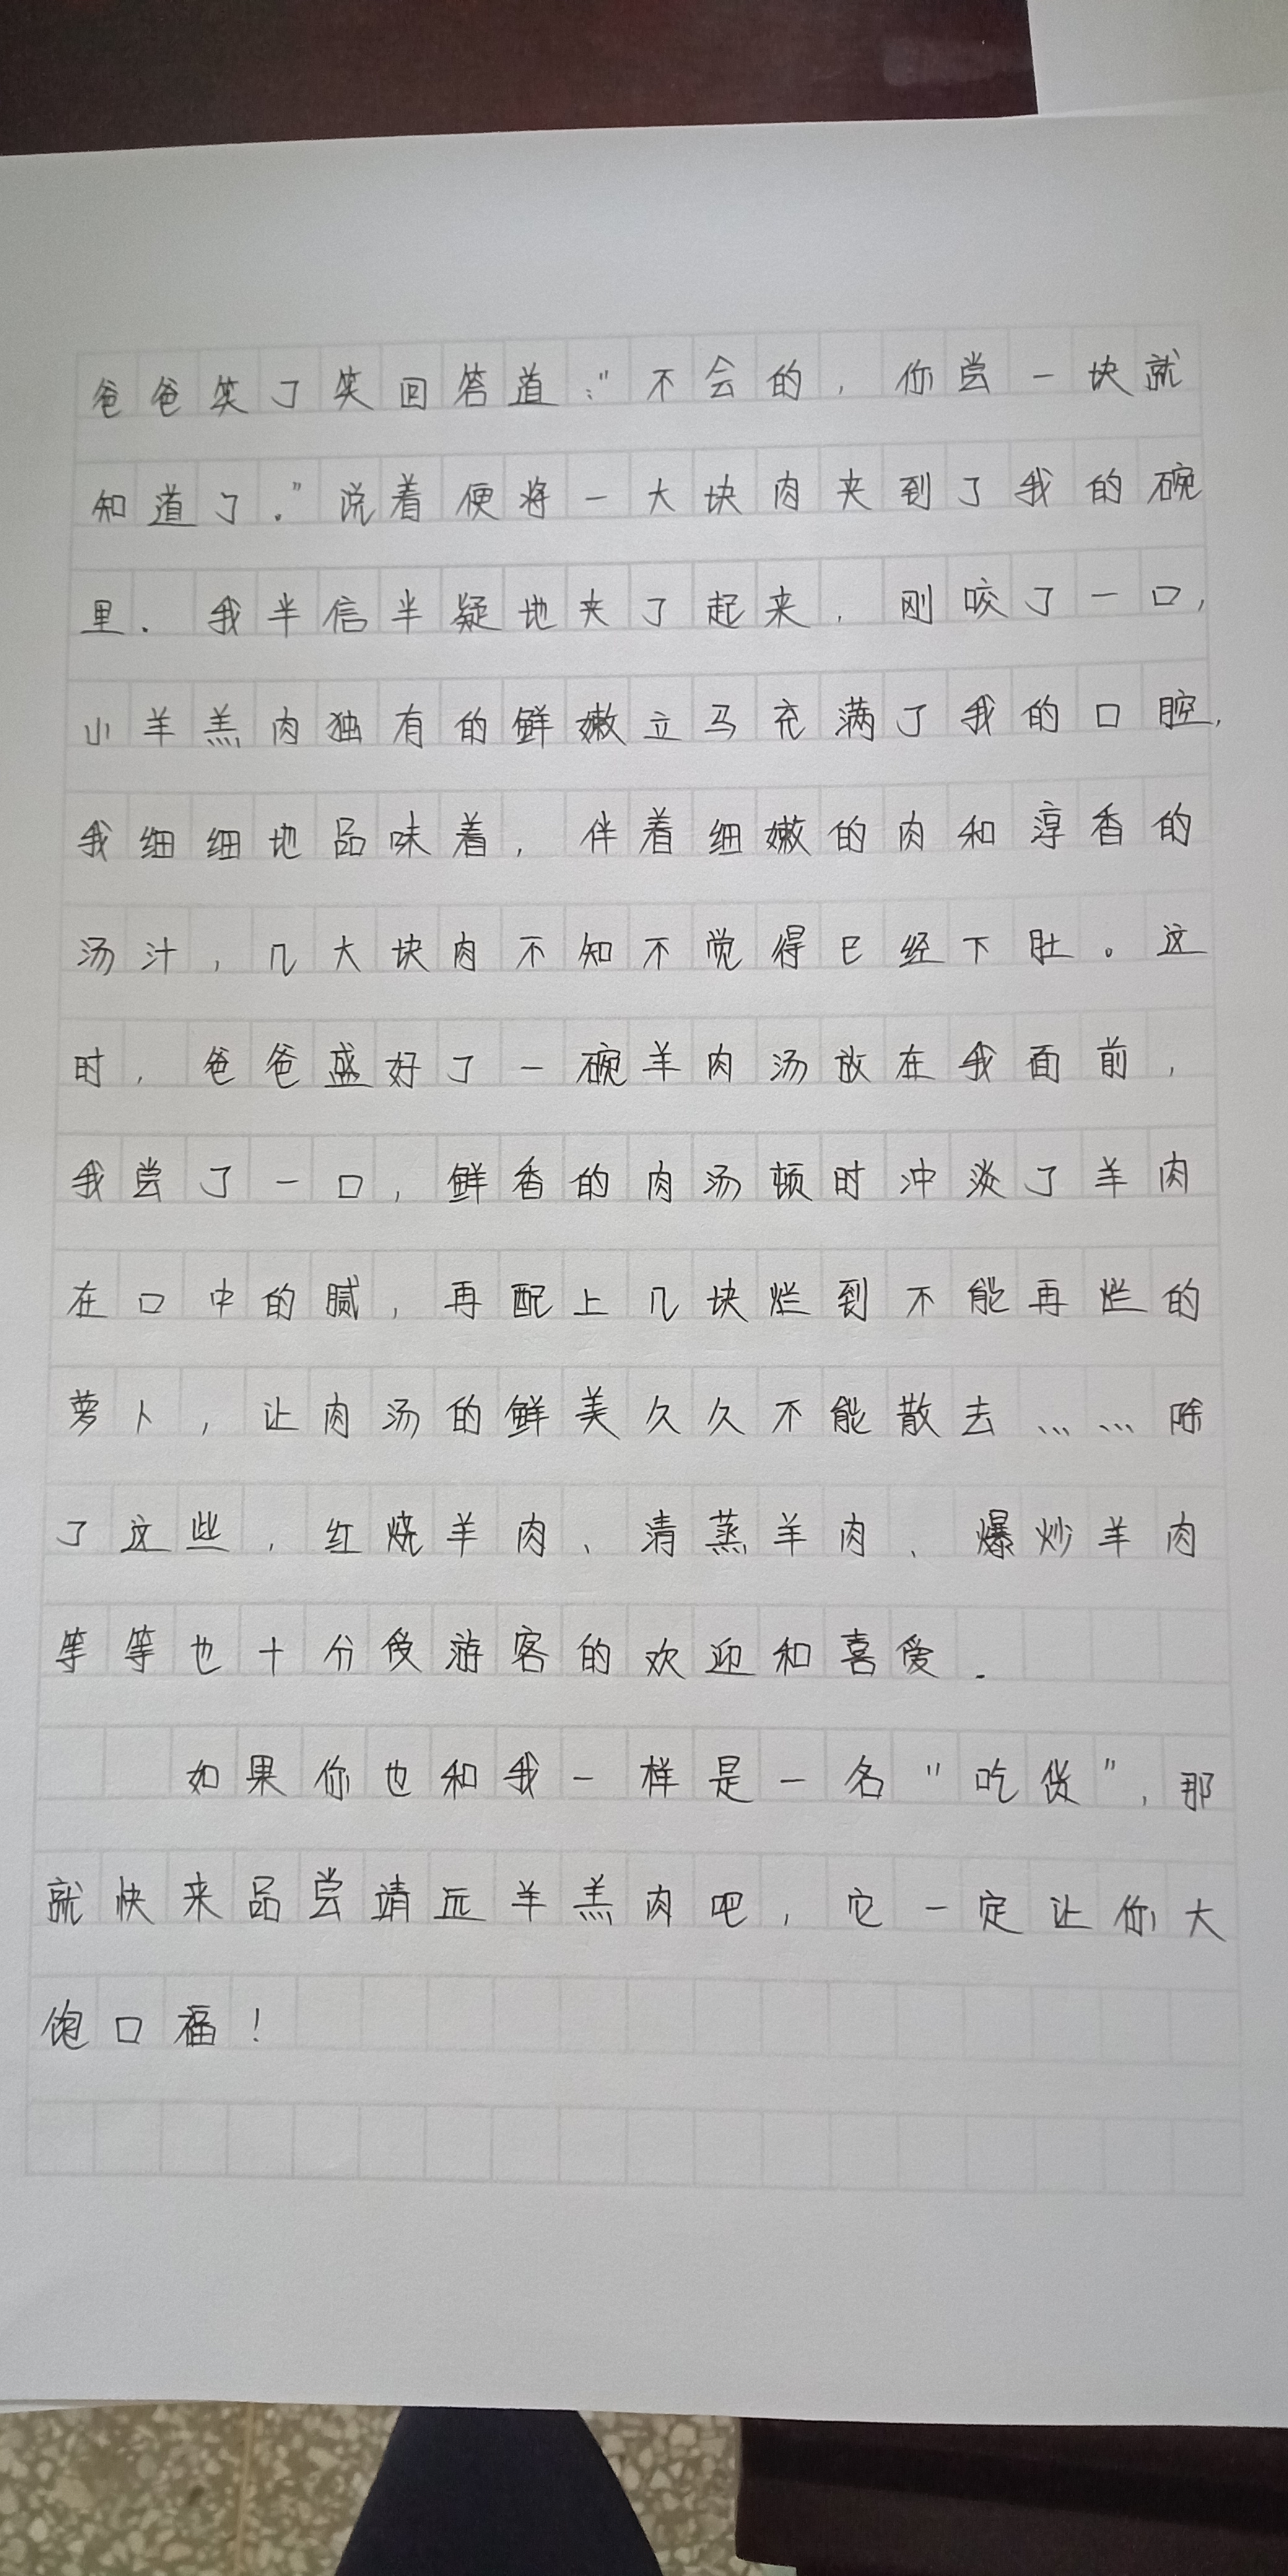 爸爸笑了笑回答道:"不会的,你尝一块就
知道了。"说着便将一大块肉夹到了我的碗
里.我半信半疑地夹了起来,刚咬了一口,
小羊羔肉独有的鲜嫩立马充满了我的口腔,
我细细地品味着,伴着细嫩的肉和淳香的
汤汁,几大块肉不知不觉得已经下肚。这
时,爸爸盛好了一碗羊肉汤放在我面前,
我尝了一口,鲜香的肉汤顿时冲淡了羊肉
在口中的腻,再配上几块烂到不能再烂的
萝卜,让肉汤的鲜美久久不能散去……除
了这些,红烧羊肉、清蒸羊肉、爆炒羊肉
等等也十分受游客的欢迎和喜爱.
如果你也和我一样是一名"吃货",那
就快来品尝靖远羊羔肉吧,它一定让你大
饱口福!